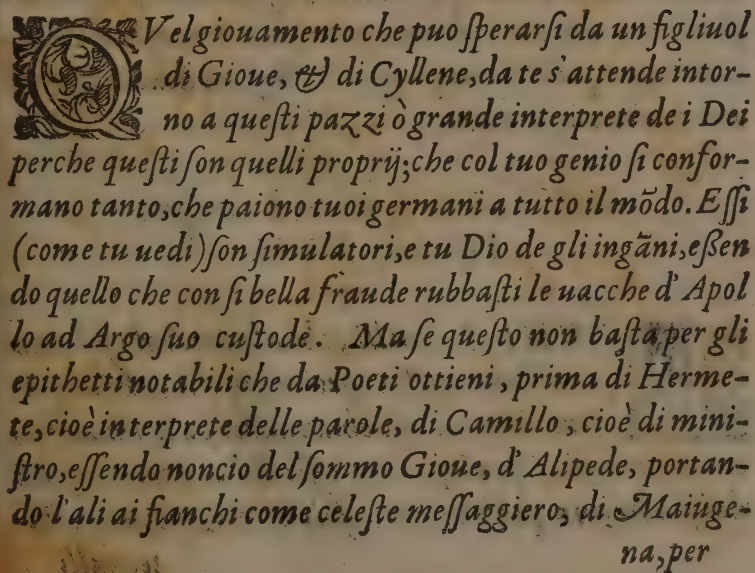 QVel giouamento che puo ſperarſi da un figliuol
di Gioue, & di Cyllene, da te s'attende intor-
no a queſti pazzi ò grande interprete de i Dei
perche queſti ſon quelli proprij; che col tuo genio ſi confor-
mano tanto, che paiono tuoi germani a tutto il mõdo. Eſſi
(come tu uedi) ſon ſimulatori, e tu Dio de gli ingãni, eßen
do quello che con ſi bella fraude rubbaſti le uacche d'Apol
lo ad Argo ſuo cuſtode. Ma ſe queſto non baſta per gli
epithetti notabili che da Poeti ottieni, prima di Herme-
te, cioè interprete delle parole, di Camillo, cioè di mini-
ſtro, eſſendo noncio del ſommo Gioue, d'Alipede, portan-
do l'ali ai fianchi come celeſte meſſaggiero, di Maiuge-
na, per